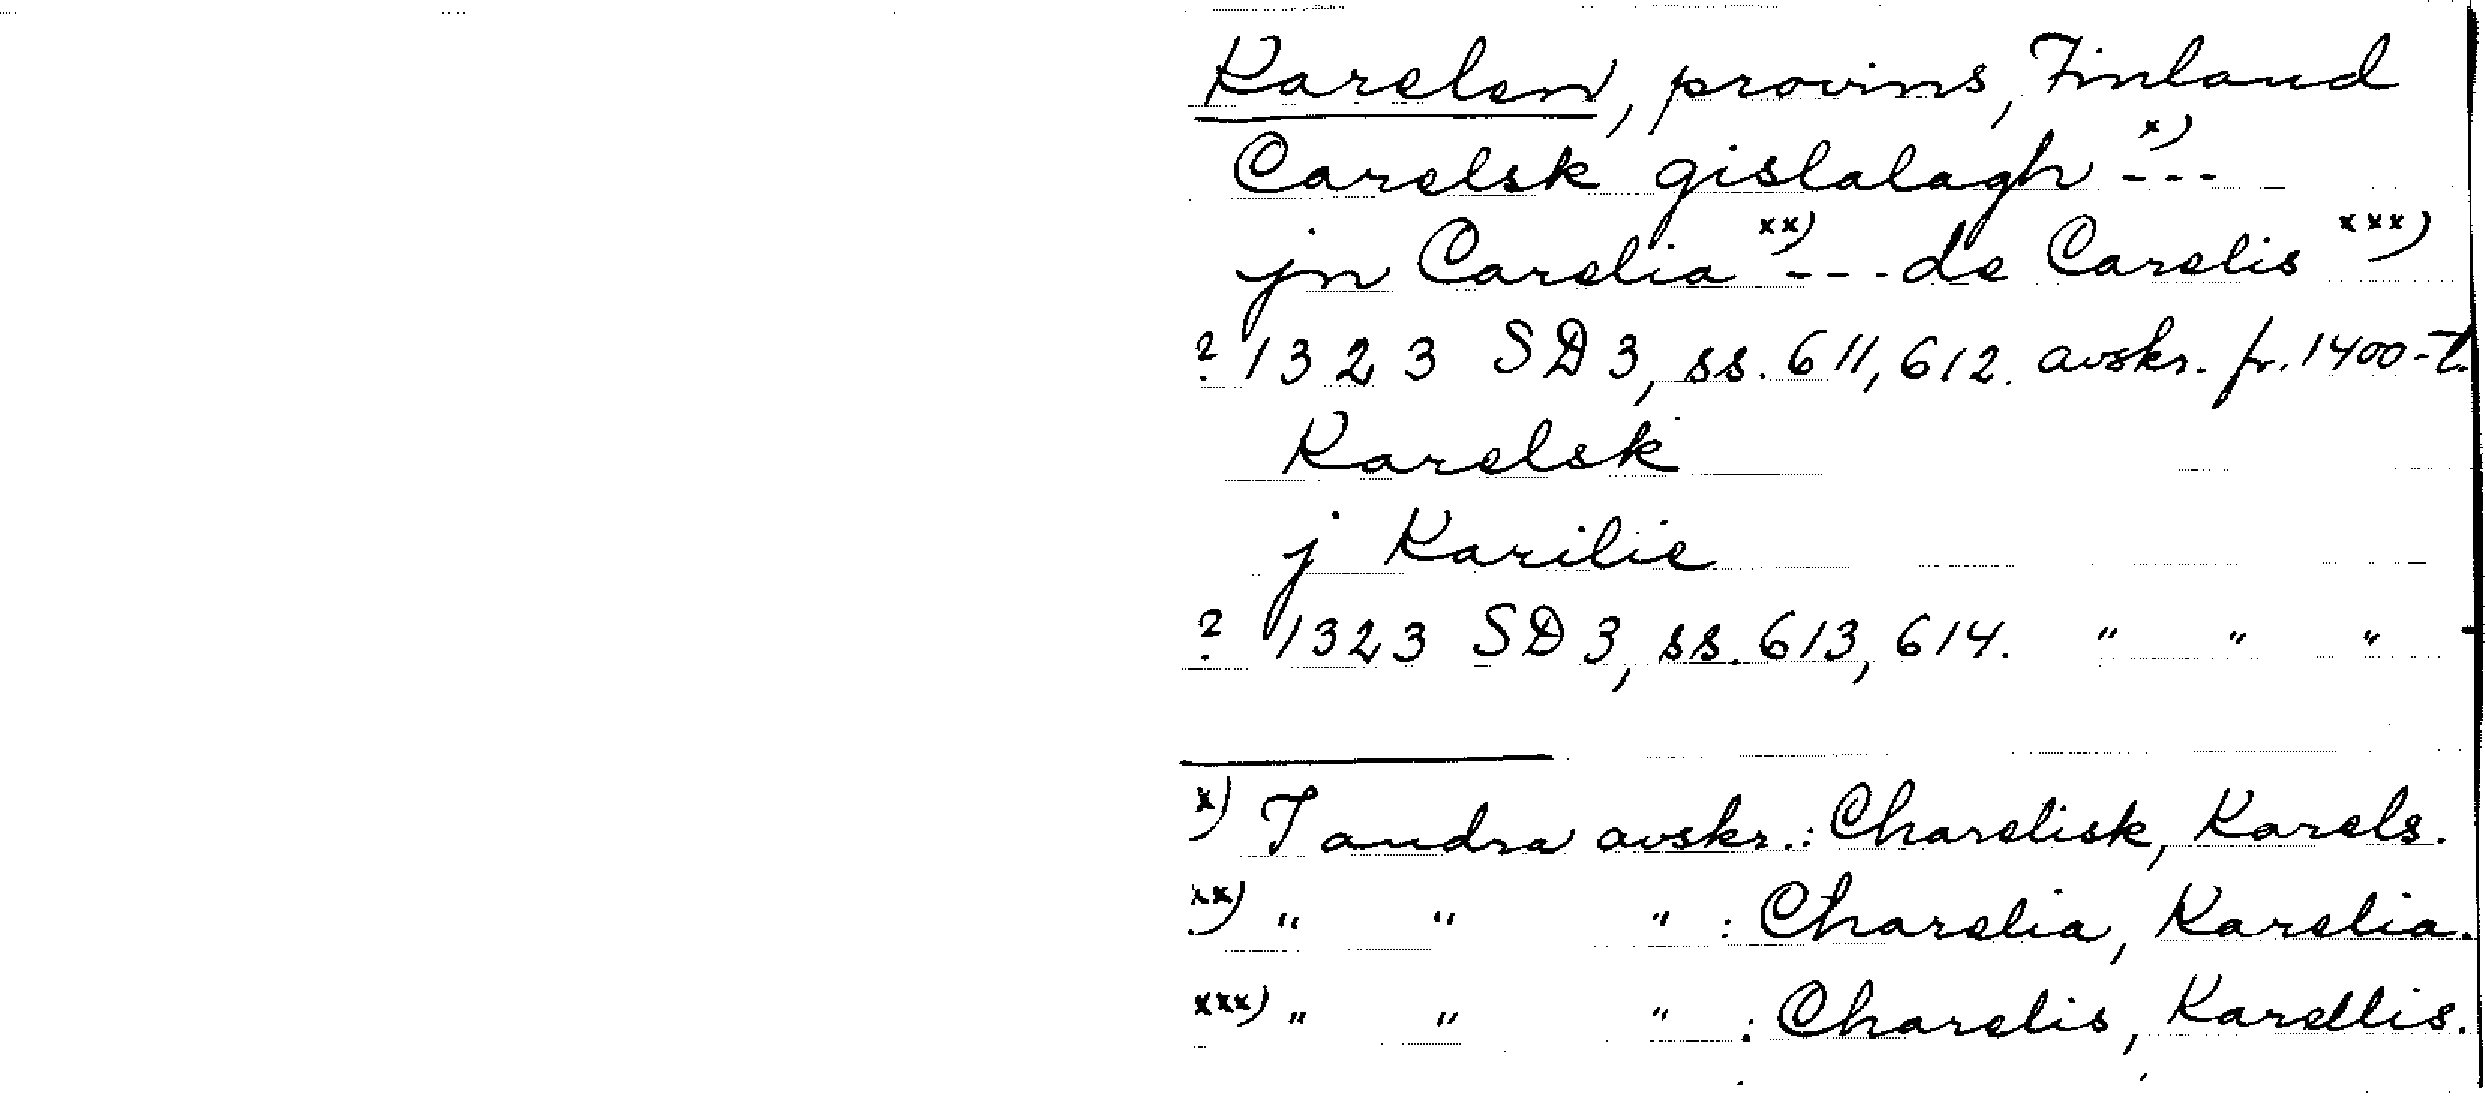 Karelen, provins, Finland
Carelsk gislalagh x) ---
jn Carelia xx) --- de Carelis xxx)
? 1323 SD 3, ss. 611, 612. avskr. fr. 1400-t.
Karelsk
j Karilie
? 1323 SD 3, ss. 613, 614. " " "
x) I andra avskr.: Charelisk, Karels.
xx) " " " : Charelia, Karelia.
xxx) " " " : Charelis, Karellis.